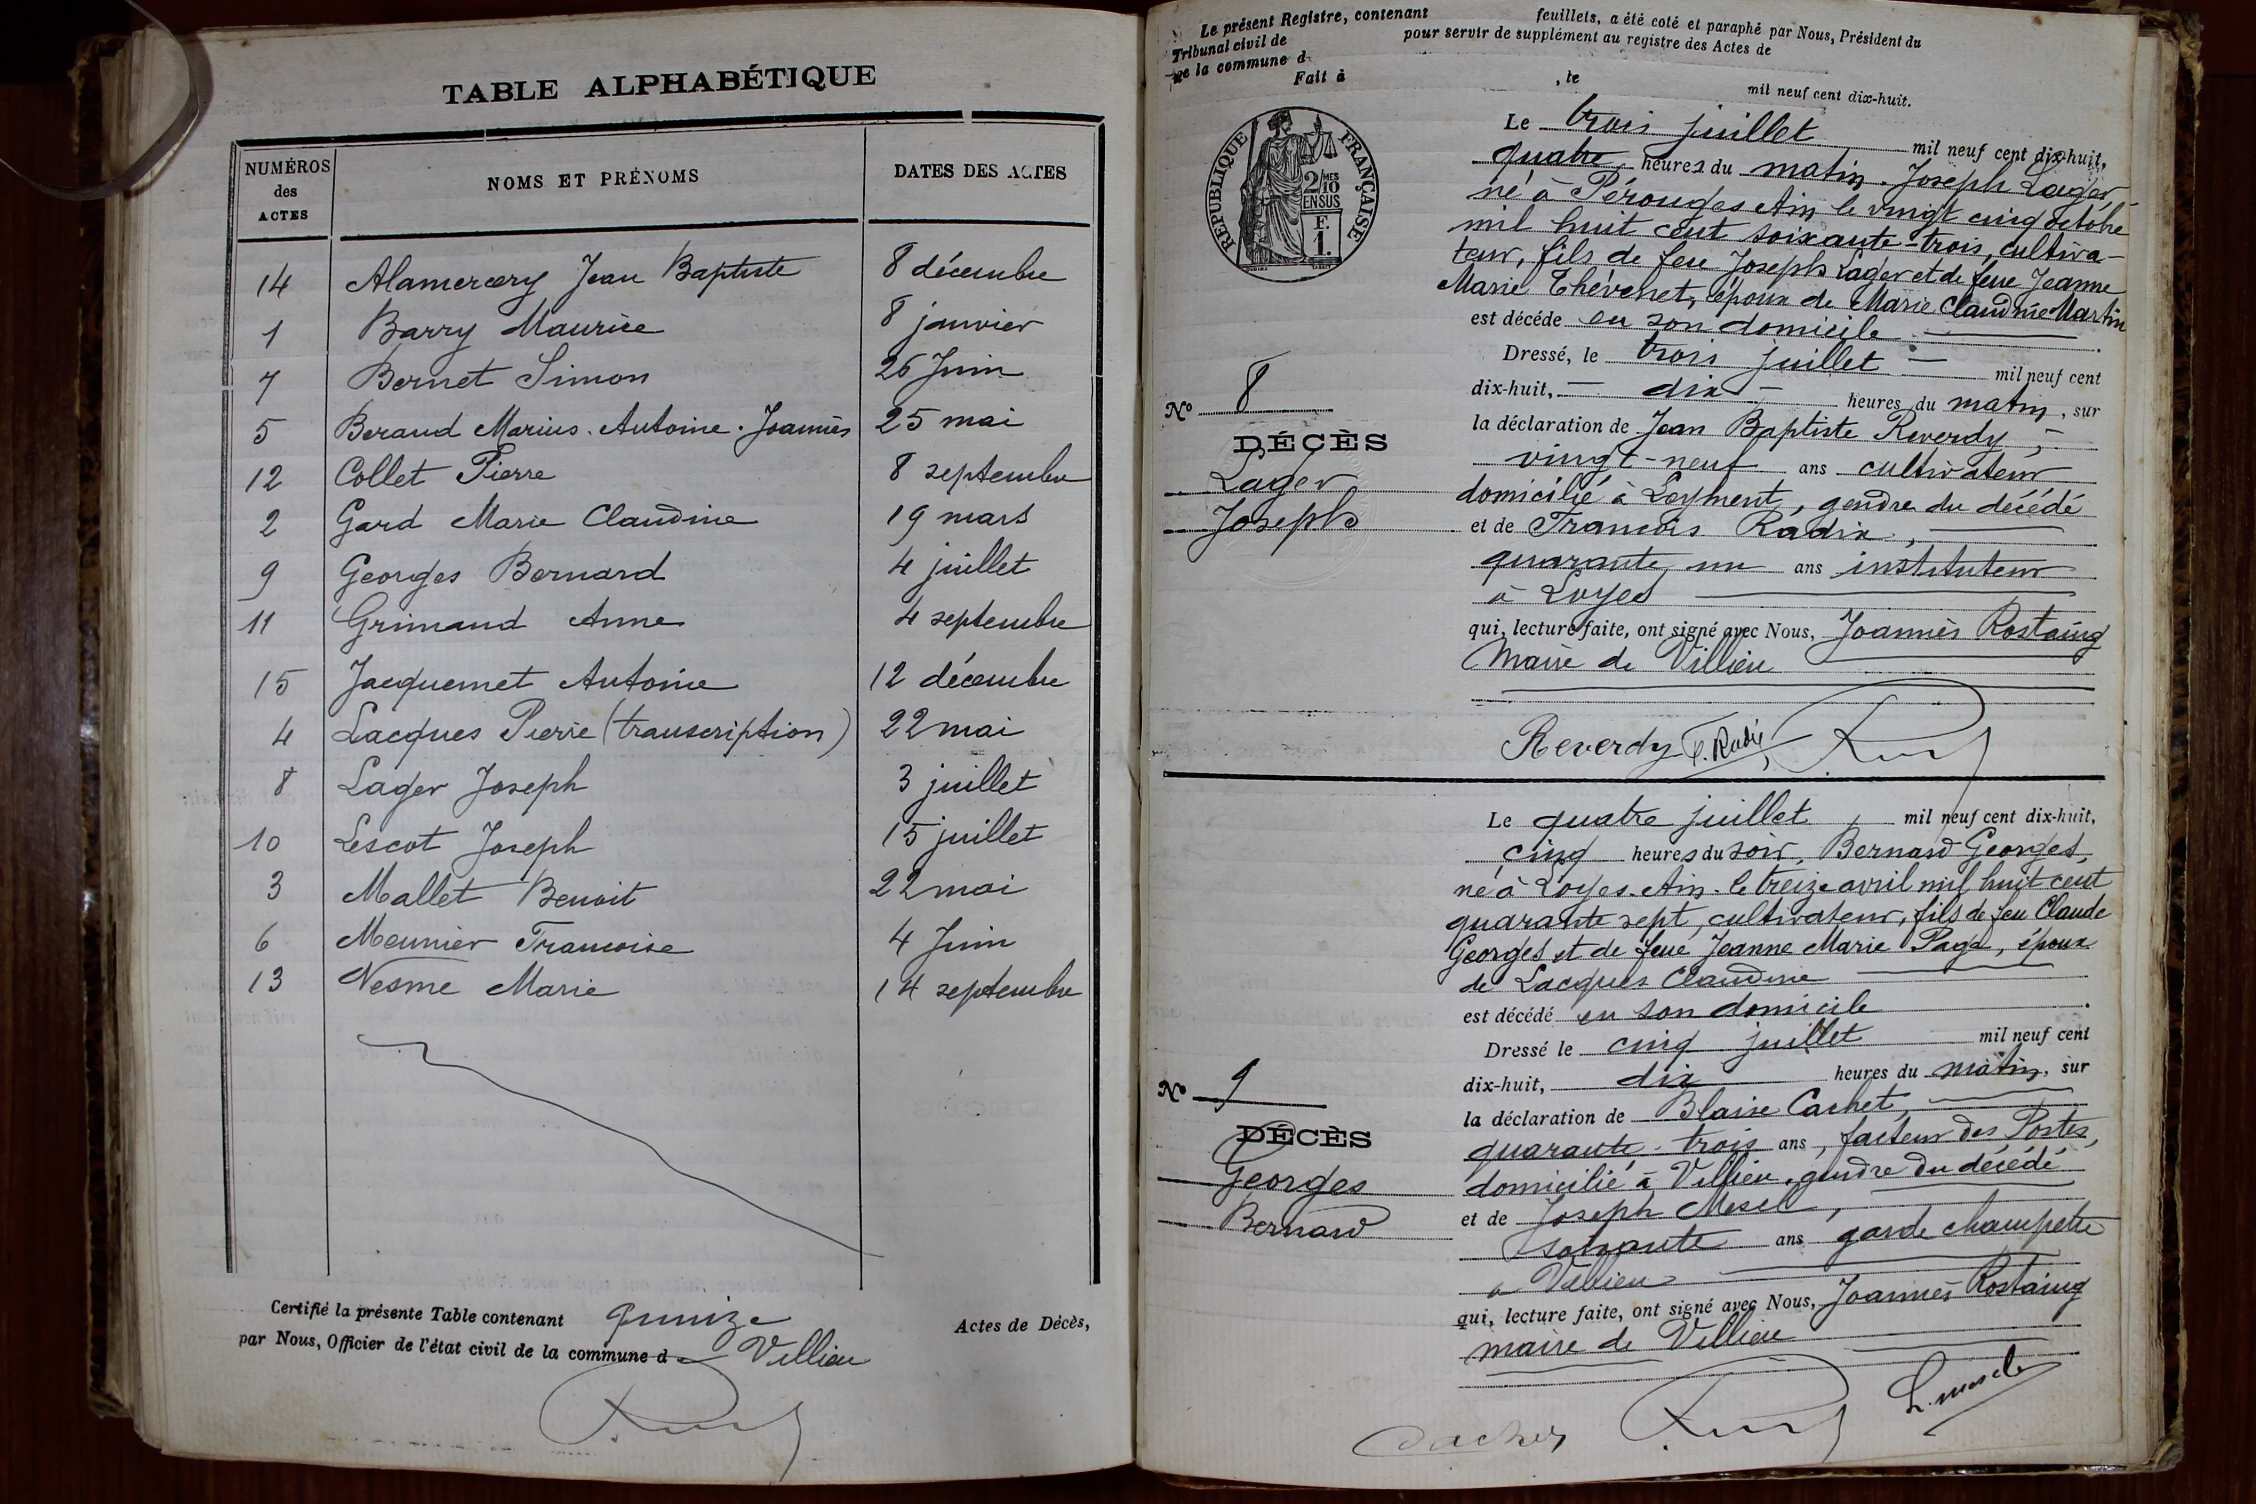 TABLE ALPHABÉTIQUE
NUMÉROS des ACTES
NOMS ET PRÉNOMS
DATES DES ACTES
14 Alamercery Jean Baptiste 8 décembre
1 Barry Maurice 8 janvier
7 Bernet Simon 26 Juin
5 Beraud Marius. Antoine. Joannès 25 mai
12 Collet Pierre 8 septembre
2 Gard Marie Claudine 19 mars
9 Georges Bernard 4 juillet
11 Grimaud Anne 4 septembre
15 Jacquemet Antoine 12 décembre
4 Lacques Pierre (transcription) 22 mai
8 Lager Joseph 3 juillet
10 Lescot Joseph 15 juillet
3 Mallet Benoit 22 mai
6 Meunier Francoise 4 Juin
13 Nesme Marie 14 septembre
Certifié la présente Table contenant quinze Actes de Décès,
par Nous, Officier de l'état civil de la commune de Villieu
Le présent Registre, contenant feuillets, a été coté et paraphé par Nous, Président du
Tribunal civil de pour servir de supplément au registre des Actes de
de la commune d
Fait à , le mil neuf cent dix-huit.
RÉPUBLIQUE FRANÇAISE
2/10 MES
EN SUS
F.
1.
Le trois juillet mil neuf cent dix-huit,
quatre heures du matin. Joseph Lager,
né à Pérouges Ain le vingt cinq octobre
mil huit cent soixante-trois, cultiva-
teur, fils de feu Joseph Lager et de feue Jeanne
Marie Thévenet, époux de Marie Claudine Martin
est décédé en son domicile
Dressé, le trois juillet mil neuf cent
dix-huit, dix heures du matin, sur
la déclaration de Jean Baptiste Reverdy,
vingt-neuf ans cultivateur
domicilié à Leyment, gendre du décédé
et de Francois Radix,
quarante un ans instituteur
à Loyes
qui, lecture faite, ont signé avec Nous, Joannès Rostaing
Maire de Villieu
No 8
DÉCÈS
Lager
Joseph
Reverdy F. Radix
Le quatre juillet, mil neuf cent dix-huit,
cinq heures du soir, Bernard Georges,
né à Loyes-Ain-le treize avril mil huit cent
quarante sept, cultivateur, fils de feu Claude
Georges et de feue Jeanne Marie Page, époux
de Lacques Claudine
est décédé en son domicile.
Dressé le cinq juillet mil neuf cent
dix-huit, dix heures du matin, sur
la déclaration de Blaise Cachet,
quarante-trois ans, facteur des Postes,
domicilié à Villieu, gendre du décédé
et de Joseph Morel,
soixante ans garde champetre
à Villieu
qui, lecture faite, ont signé avec Nous, Joannès Rostaing
maire de Villieu
No 9
DÉCÈS
Georges
Bernard
Cachet